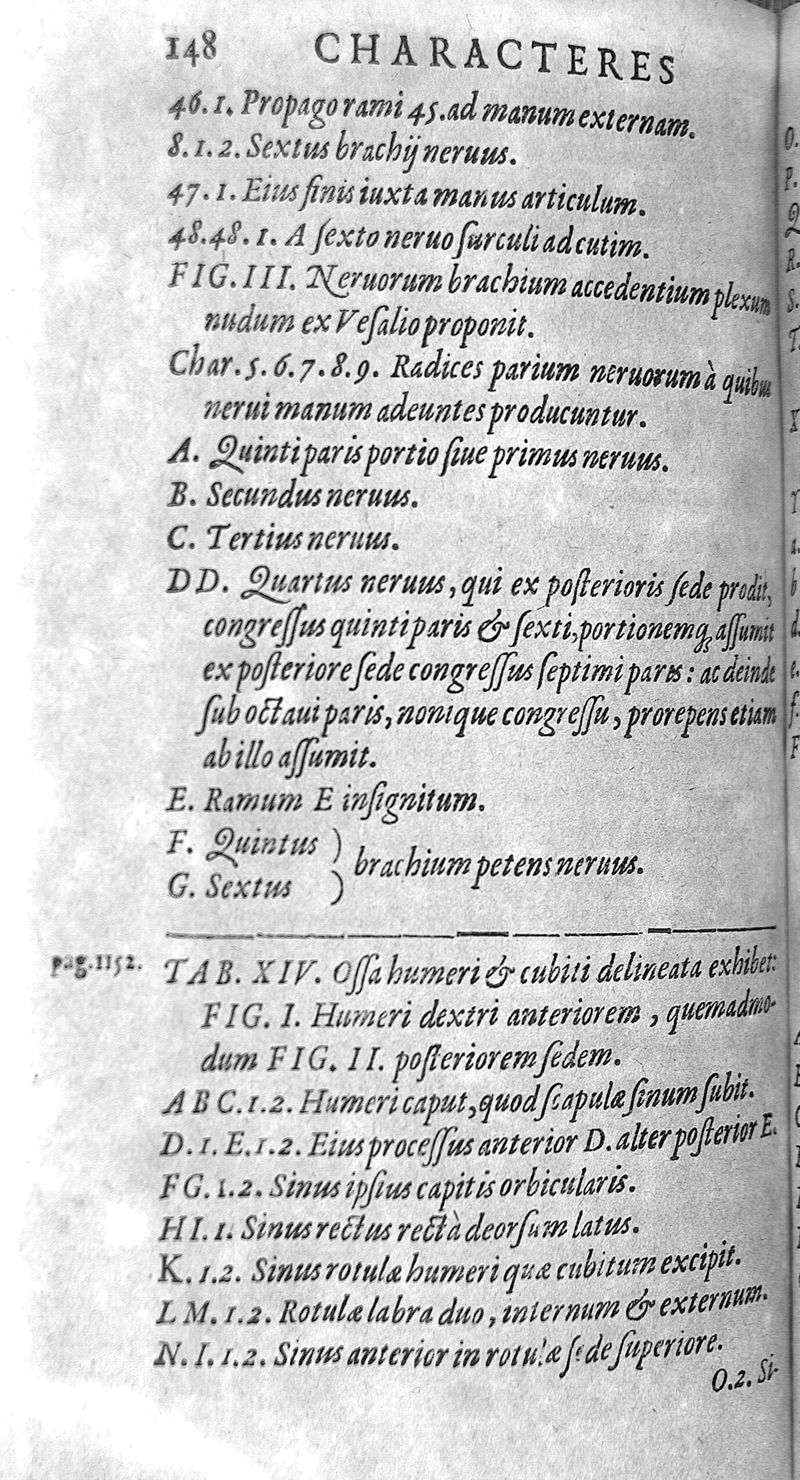 148 CHARACTERES
46.1. Propago rami 45. ad manum externam.
8.1.2. Sextus brachij neruus.
47.1. Eius finis iuxta manus articulum.
48.48.1. A ſexto neruo ſurculi ad cutim.
FIG. III. Neruorum brachium accedentium plexum
nudum ex Veſalio proponit.
Char. 5. 6. 7. 8. 9. Radices parium neruorum à quibus
nerui manum adeuntes producuntur.
A. Quinti paris portio ſiue primus neruus.
B. Secundus neruus.
C. Tertius neruus.
DD. Quartus neruus, qui ex poſterioris ſede prodit,
congreſſus quinti paris & ſexti, portionemq́ aſſumit
ex poſteriore ſede congreſſus ſeptimi paris: ac deinde
ſub octaui paris, nonique congreſſu, prorepens etiam
ab illo aſſumit.
E. Ramum E inſignitum.
F. Quintus )
brachium petens neruus.
G. Sextus )
pag. 1152. TAB. XIV. Oſſa humeri & cubiti delineata exhibet:
FIG. I. Humeri dextri anteriorem, quemadmo-
dum FIG. II. poſteriorem ſedem.
A B C. 1.2. Humeri caput, quod ſcapulæ ſinum ſubit.
D. 1. E. 1.2. Eius proceſſus anterior D. alter poſterior E.
F G. 1.2. Sinus ipſius capitis orbicularis.
H I. 1. Sinus rectus rectà deorſum latus.
K. 1.2. Sinus rotulæ humeri quæ cubitum excipit.
L M. 1.2. Rotulæ labra duo, internum & externum.
N. I. 1.2. Sinus anterior in rotulæ ſede ſuperiore.
O. 2. Si-